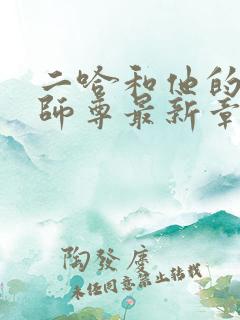 二哈和他的
師尊最新章
陶發廣
未经同意禁止转载